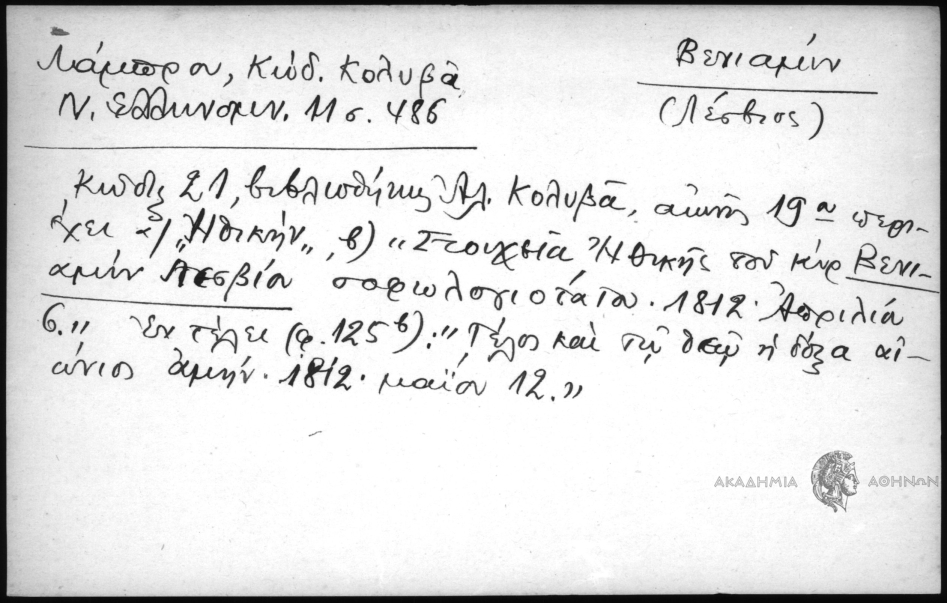 Λάμπρου, Κώδ. Κολυβᾶ
Ν. Ἑλληνομν. 11 σ. 486
Βενιαμίν
(Λέσβιος)
Κώδιξ 21, βιβλιοθήκης Ἀλ. Κολυβᾶ, αἰῶνος 19ου περι-
έχει α) „Ἠθικήν„, β) „Στοιχεῖα Ἠθικῆς τοῦ κὺρ Βενι-
αμὶν Λεσβίου σοφωλογιοτάτου. 1812. Ἀπριλίου
6.„ Ἐν τέλει (φ. 125β): „Τέλος καὶ τῷ θεῷ ἡ δόξα αἰ-
ώνιος ἀμήν. 1812. μαΐου 12.„
ΑΚΑΔΗΜΙΑ ΑΘΗΝΩΝ